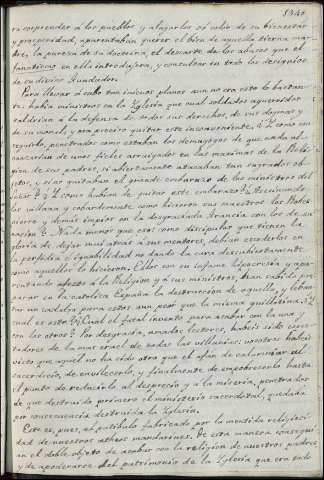 ra sorprender á los pueblos y alagarlos so color de su bienestar
y prosperidad, aparentaban querer el bien de aquella tierna ma-
dre, la pureza de su doctrina, el descarte de los abusos que el
fanatismo en ella introdujera, y consultar en todo los designios
de su divino Fundador.
Para llevar á cabo tan inicuos planes aun no era esto lo bastan-
te: habia ministros en la Iglesia que cual soldados aguerridos
saldrian á la defensa de todos sus derechos, de sus dogmas y
de su moral, y era preciso quitar este inconveniente. ¿Y como con-
seguirlo, penetrados como estaban los demagogos de que nada al-
canzarian de unos fieles arraigados en las maximas de la Reli-
gion de sus padres, si abiertamente atacaban tan sagrados ob-
jetos, y sino quitaban el grande embarazo de los ministros del
altar? ¿Y como habian de quitar este embarazo? ¿Asesinando-
los villana y cobardemente como hicieron sus maestros los Robes-
pierre y demás impios en la desgraciada Francia con los de su
nacion? Nada menor que eso: como discipulos que tienen la
gloria de dejar muy atrás á sus mentores, debian excederlos en
la perfidia é ignobilidad no dando la cara descubiertamente
como aquellos lo hicieron. Ellos con su infame hipocresia y apa-
rentando afecto á la Religion y á sus ministros, han sabido pre-
parar en la catolica España la destruccion de aquella, y levan-
tar un cadalso para estos aun peor que la misma guillotina. ¿Y
cual es este? ¿Cual el fatal invento para acabar con la una y
con los otros? Por desgracia, amados lectores, habeis sido espec-
tadores de la mas cruel de todas las villanias: vosotros habeis
visto que aquel no ha sido otro que el afan de calumniar al
sacerdocio, de envilecerlo, y finalmente de empobrecerlo hasta
el punto de reducirlo al desprecio y á la miseria, penetrados
de que destruido primero el ministerio sacerdotal, quedaba
por consecuencia destruida la Iglesia.
Este es, pues, el patibulo fabricado por la mentida religiosi-
dad de nuestros atheos mandarines. De esta manera consegui-
an el doble objeto de acabar con la religion de nuestros padres
y de apoderarse del patrimonio de la Iglesia que era todo